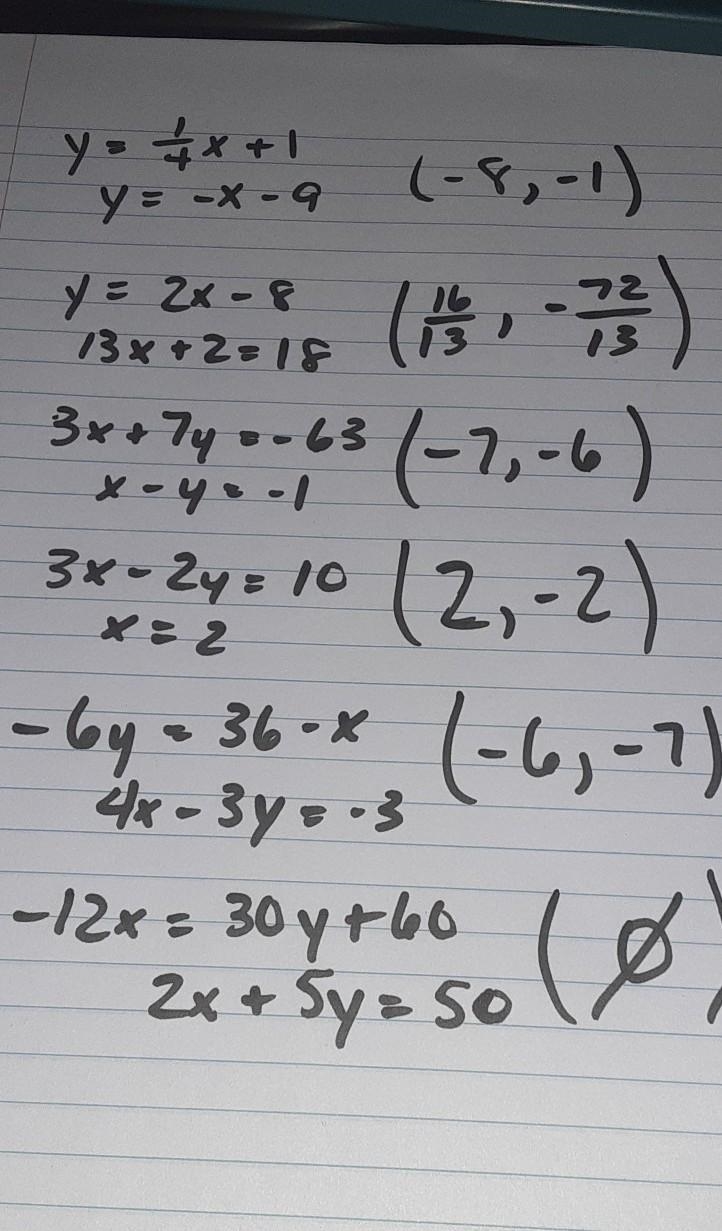 y = 1/4 x + 1
y = -x - 9 (-8, -1)
y = 2x - 8 (16/13, -72/13)
13x + 2 = 18
3x + 7y = -63 (-7, -6)
x - y = -1
3x - 2y = 10 (2, -2)
x = 2
-6y = 36 - x (-6, -7)
4x - 3y = -3
-12x = 30y + 60 (∅)
2x + 5y = 50